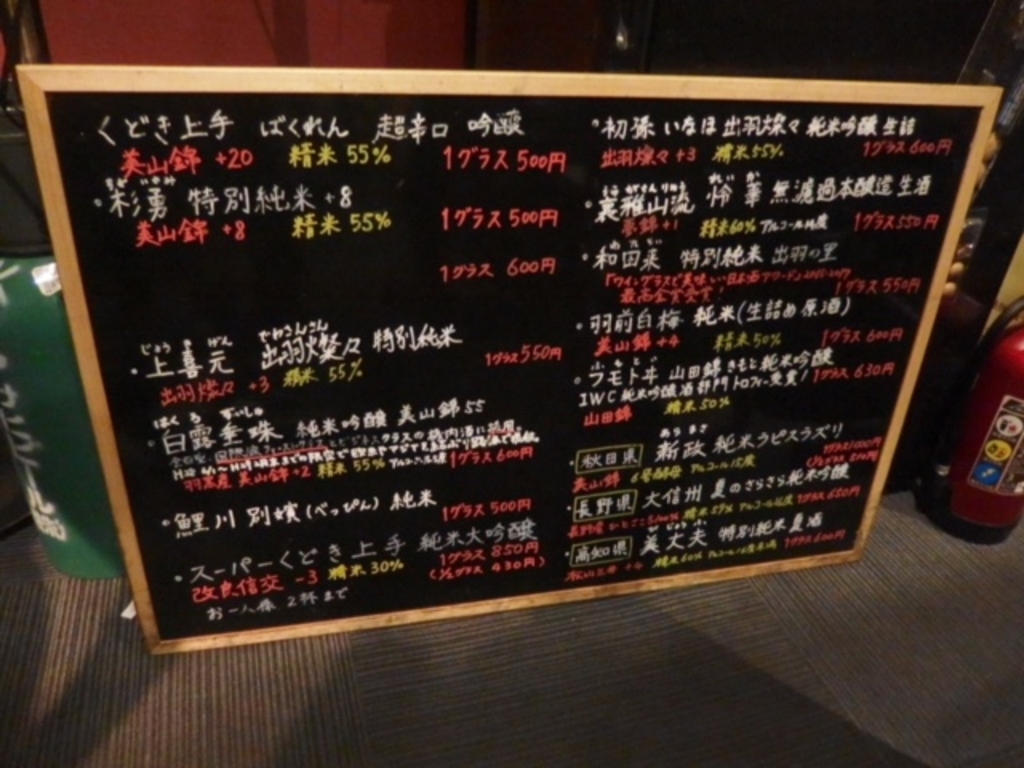 くどき上手 ばくれん 超辛口 吟醸
美山錦 +20 精米 55% 1グラス 500円
・杉勇 特別純米 +8
美山錦 +8 精米 55% 1グラス 500円
1グラス 600円
じょう き げん でわさんさん
・上喜元 出羽燦々 特別純米
出羽燦々 +3 精米 55% 1グラス 550円
はく ろ すいしゅ
・白露垂珠 純米吟醸 美山錦 55
羽黒産 美山錦 +2 精米 55% 1グラス 600円
・鯉川 別嬪 (べっぴん) 純米 1グラス 500円
・スーパーくどき上手 純米大吟醸
改良信交 -3 精米 30% 1グラス 850円
(1/2グラス 430円)
お一人様 2杯まで
・初孫 いなほ 出羽燦々 純米吟醸 生詰
出羽燦々 +3 精米 55% 1グラス 600円
うらがさんりゅう れい か
・裏雅山流 怜華 無濾過本醸造 生酒
+1 精米 60% アルコール 度 1グラス 550円
・和田来 特別純米 出羽の里
「ワイングラスで美味しい日本酒アワード」
最高金賞受賞! 1グラス 550円
・羽前白梅 純米 (生詰め原酒)
美山錦 +4 精米 50% 1グラス 600円
・フモトヰ 山田錦 きもと純米吟醸
IWC 純米吟醸酒部門トロフィー受賞! 1グラス 630円
山田錦 精米 50%
あらまさ
・秋田県 新政 純米 ラピスラズリ
美山錦 6号酵母 アルコール 15度
・長野県 大信州 夏のさらさら純米吟醸
長野産 ひとごこち 精米 59% 1グラス 650円
・高知県 美丈夫 特別純米 夏酒
精米 60% 1グラス 600円